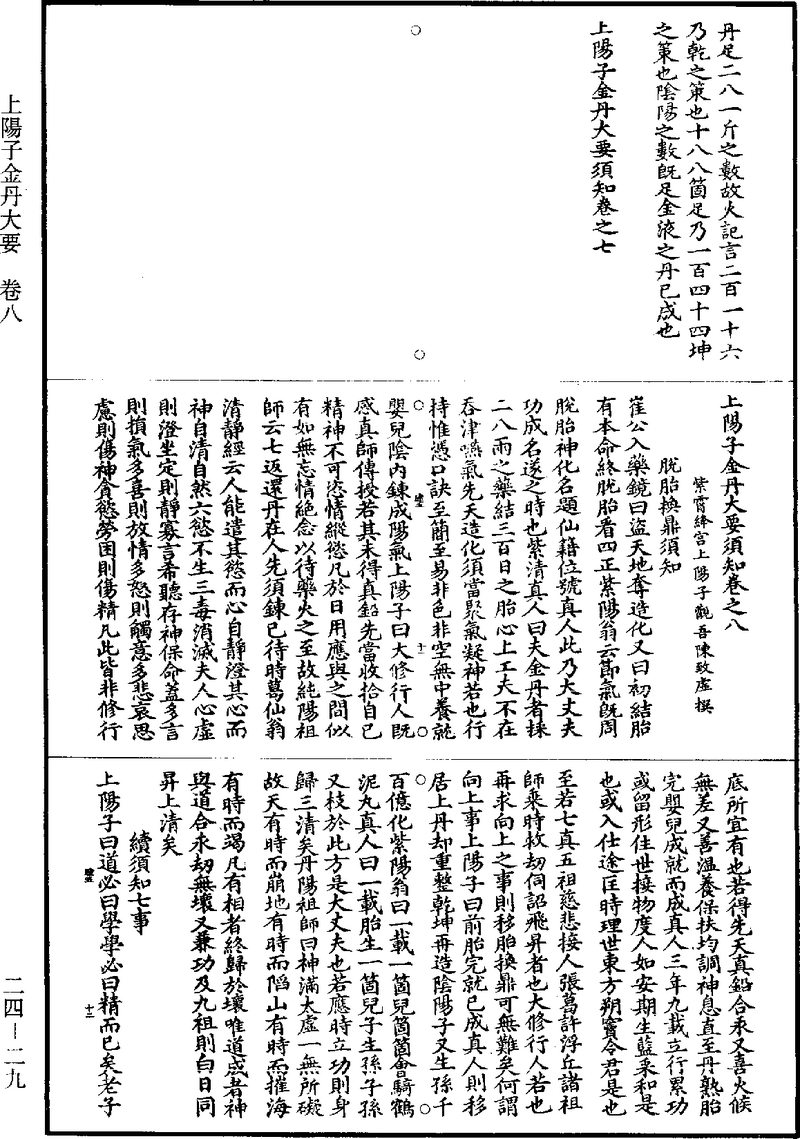 上陽子金丹大要　卷八
二四—二九
丹足二八一斤之數故火記言二百一十六
乃乾之策也十八八箇足乃一百四十四坤
之策也陰陽之數既足金液之丹已成也
上陽子金丹大要須知卷之七
上陽子金丹大要須知卷之八
紫霄絳宮上陽子觀吾陳致虛撰
脫胎換鼎須知
崔公入藥鏡曰盜天地奪造化又曰初結胎
有本命終脫胎看四正紫陽翁云節氣既周
脫胎神化名題仙籍位號真人此乃大丈夫
功成名遂之時也紫清真人曰夫金丹者採
二八兩之藥結三百日之胎心上工夫不在
吞津嚥氣先天造化須當聚氣凝神若也行
持惟憑口訣至簡至易非色非空無中養就
嬰兒陰內鍊成陽氣上陽子曰大修行人既
感真師傳授若其未得真鉛先當收拾自己
精神不可恣情縱慾凡於日用應與之間似
有如無忘情絕念以待藥火之至故純陽祖
師云七返還丹在人先須鍊己待時葛仙翁
清靜經云人能遣其慾而心自靜澄其心而
神自清自然六慾不生三毒消滅夫人心虛
則澄坐定則靜寡言希聽存神保命蓋多言
則損氣多喜則放情多怒則觸意多悲哀思
慮則傷神貪慾勞困則傷精凡此皆非修行
十一
底所宜有也若得先天真鉛合汞又喜火候
無差又善溫養保扶均調神息直至丹熟胎
完嬰兒成就而成真人三年九載立行累功
或留形住世接物度人如安期生藍采和是
也或入仕途匡時理世東方朔竇令君是也
至若七真五祖慈悲接人張葛許浮丘諸祖
師乘時救劫伺詔飛昇者也大修行人若也
再求向上之事則移胎換鼎可無難矣何謂
向上事上陽子曰前胎完就已成真人則移
居上丹却重整乾坤再造陰陽子又生孫千
百億化紫陽翁曰一載一箇兒箇箇會騎鶴
泥丸真人曰一載胎生一箇兒子生孫子孫
又枝於此方是大丈夫也若應時立功則身
歸三清矣丹陽祖師曰神滿太虛一無所礙
故天有時而崩地有時而陷山有時而摧海
有時而竭凡有相者終歸於壞唯道成者神
與道合永劫無壞又兼功及九祖則白日同
昇上清矣
續須知七事
上陽子曰道必曰學學必曰精而已矣老子
十二